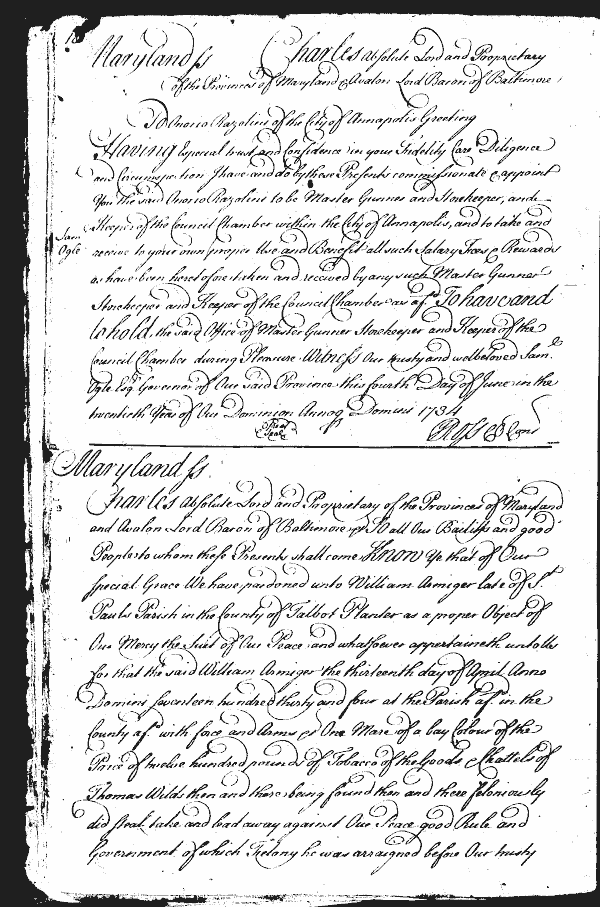 Maryland ss Charles absolute Lord and Proprietary
of the Provinces of Maryland & Avalon Lord Baron of Baltimore
To Onorio Razolini of the City of Annapolis Greeting
Having Especial trust and Confidence in your Fidelity Care Diligence
and Circumspection I have and do by these Presents commissionate & appoint
You the said Onorio Razolini to be Master Gunner and Storekeeper, and
Keeper of the Council Chamber within the City of Annapolis, and to take and
Sam
Ogle
receive to your own proper Use and Benefit all such Salary Fees & Rewards
as have been heretofore taken and received by any such Master Gunner
Storekeeper and Keeper of the Council Chamber as afd. To have and
to hold the said Office of Master Gunner Storekeeper and Keeper of the
Council Chamber during Pleasure. Witness Our trusty and welbeloved Saml.
Ogle Esqr. Governor of Our said Province this fourth Day of June in the
twentieth Year of Our Dominion Annoq Domini 1734
Great
Seal
Maryland ss
Charles absolute Lord and Proprietary of the Provinces of Maryland
and Avalon Lord Baron of Baltimore &c To all Our Bailiffs and good
People to whom these Presents shall come Know Ye that of Our
special Grace We have pardoned unto William Armiger late of St.
Pauls Parish in the County of Talbot Planter as a proper Object of
Our Mercy the Suit of Our Peace and whatsoever appertaineth unto Us
for that the said William Armiger the thirteenth day of April Anno
Domini seventeen hundred thirty and four at the Parish afd. in the
County afd. with force and Arms &c One Mare of a bay Colour of the
Price of twelve hundred pounds of Tobacco of the Goods & Chattels of
Thomas Wilds then and there being found then and there feloniously
did steal take and lead away against Our Peace good Rule and
Government of which Felony he was arraigned before Our trusty